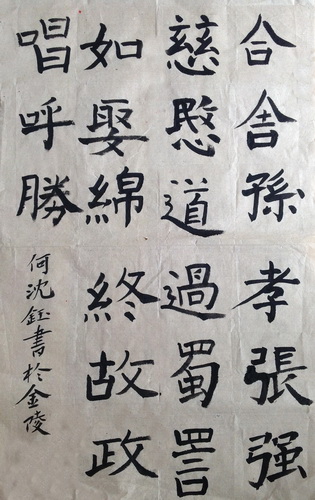 合舍孫孝張强
慈愍道過蜀詈
如娶綿終故政
唱呼勝
何沈鈺書於金陵